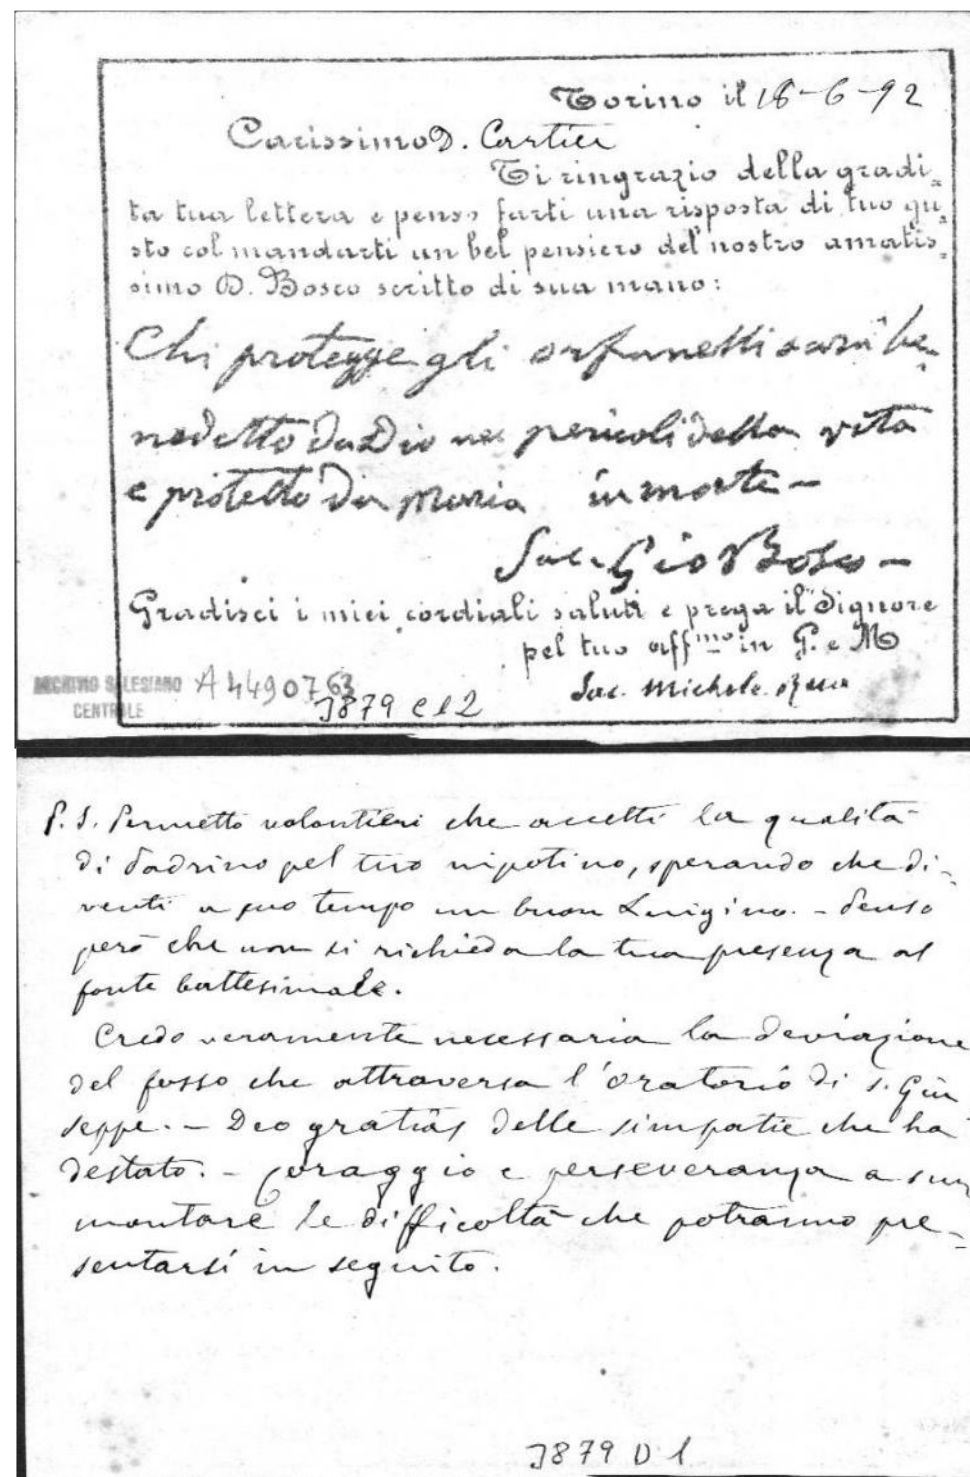 Torino il 18-6-92
Carissimo D. Cartier
Ti ringrazio della gradi=
ta tua lettera e penso farti una risposta di tuo gu=
sto col mandarti un bel pensiero del nostro amatis=
simo D. Bosco scritto di sua mano:
Chi protegge gli orfanelli sarà be=
nedetto da Dio nei pericoli della vita
e protetto da Maria in morte –
Sac. Gio Bosco –
Gradisci i miei cordiali saluti e prega il Signore
pel tuo aff.mo in G. e M
Sac. Michele Rua
ARCHIVIO SALESIANO
CENTRALE
A 4490763
3879 C 12
P. S. Permetto volontieri che accetti la qualità
di Padrino pel tuo nipotino, sperando che di-
venti a suo tempo un buon Luigino. – Penso
però che non si richieda la tua presenza al
fonte battesimale.
Credo veramente necessaria la deviazione
del fosso che attraversa l'oratorio di S. Giu
seppe. – Deo gratias delle simpatie che ha
destato. – Coraggio e perseveranza a sur
montare le difficoltà che potranno pre-
sentarsi in seguito.
3879 D 1